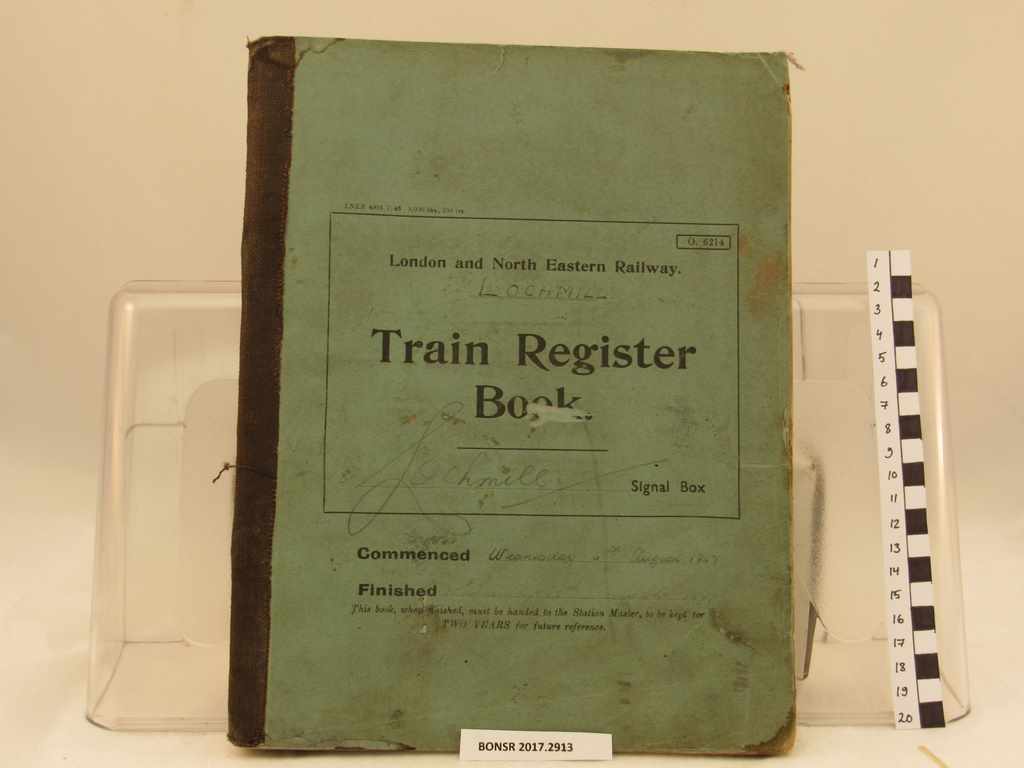 O. 6214
London and North Eastern Railway.
LOCHMILL
Train Register
Book.
Lochmill
Signal Box
Commenced August
Finished
This book, when finished, must be handed to the Station Master, to be kept for
TWO YEARS for future reference.
BONSR 2017.2913
1
2
3
4
5
6
7
8
9
10
11
12
13
14
15
16
17
18
19
20